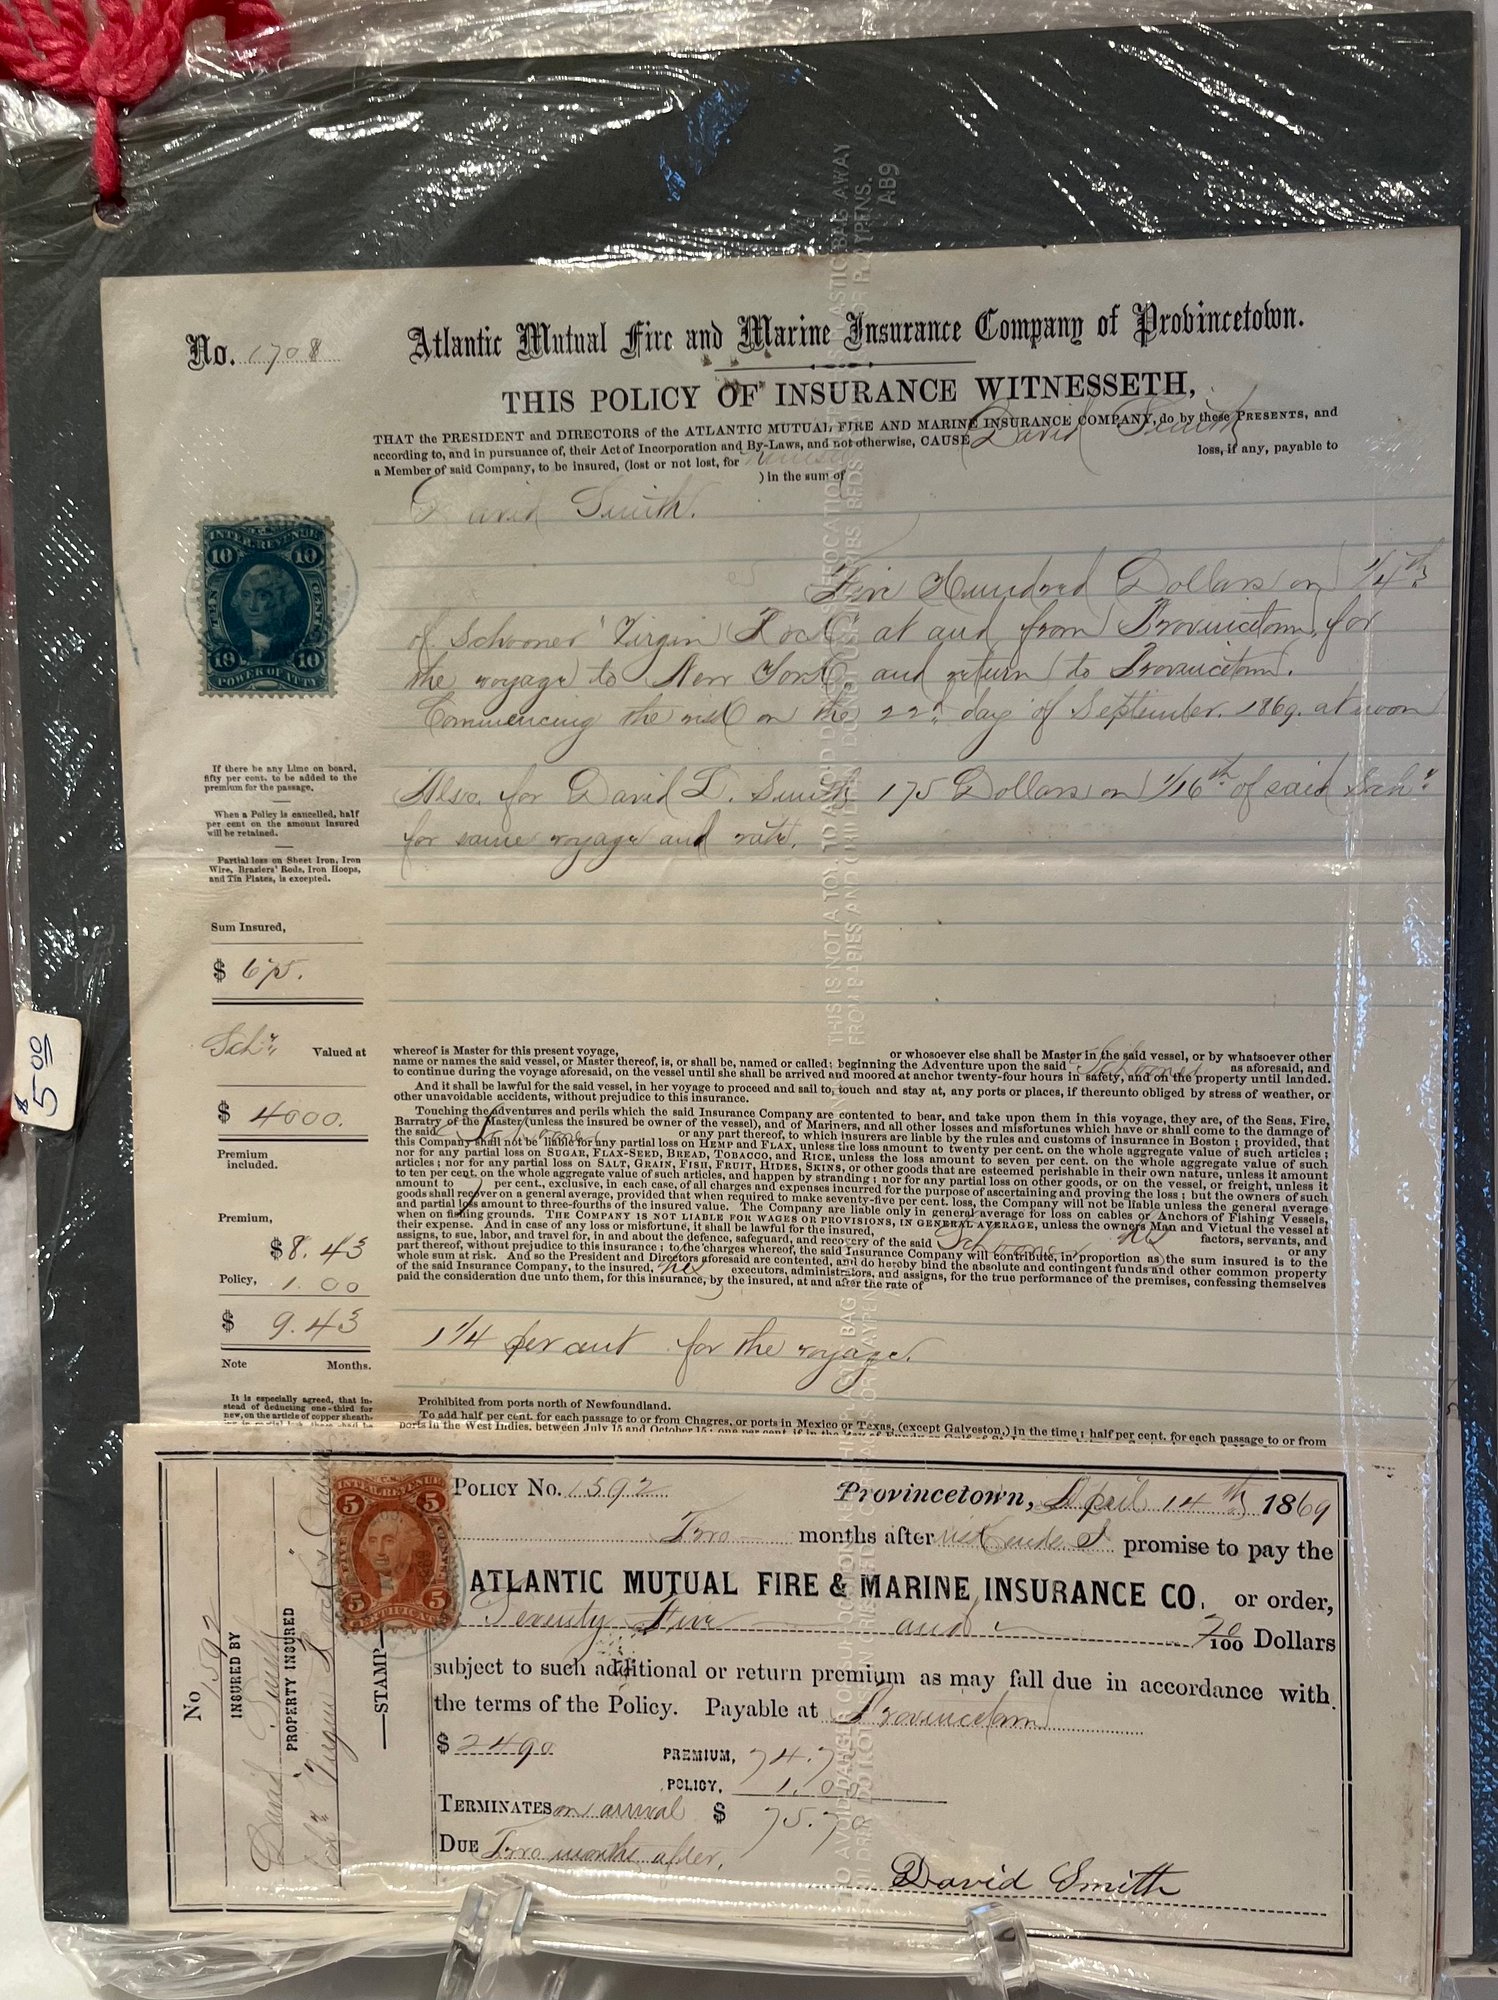 No. 1708
Atlantic Mutual Fire and Marine Insurance Company of Provincetown.
THIS POLICY OF INSURANCE WITNESSETH,
THAT the PRESIDENT and DIRECTORS of the ATLANTIC MUTUAL FIRE AND MARINE INSURANCE COMPANY, do by these PRESENTS, and
according to, and in pursuance of, their Act of Incorporation and By-Laws, and not otherwise, CAUSE David Smith
a Member of said Company, to be insured, (lost or not lost, for himself loss, if any, payable to
David Smith. ) in the sum of
INTER. REVENUE
10 10
TEN CENTS
10 10
POWER OF ATTY
Five Hundred Dollars on 1/4th
of Schooner "Virgin Rock" at and from Provincetown, for
the voyage to New York, and return to Provincetown.
Commencing the risk on the 22d day of September. 1869. at noon
Also, for David L. Smith 175 Dollars on 1/16th of said Schr
for same voyage and rate.
If there be any Lime on board,
fifty per cent. to be added to the
premium for the passage.
When a Policy is cancelled, half
per cent on the amount insured
will be retained.
Partial loss on Sheet Iron, Iron
Wire, Braziers' Rods, Iron Hoops,
and Tin Plates, is excepted.
Sum Insured,
$ 675.
Schr. Valued at
$ 4000.
Premium
included.
Premium,
$8.43
Policy, 1.00
$ 9.43
Note Months.
It is especially agreed, that in-
stead of deducting one-third for
new, on the article of copper sheath-
whereof is Master for this present voyage, or whosoever else shall be Master in the said vessel, or by whatsoever other
name or names the said vessel, or Master thereof, is, or shall be, named or called; beginning the Adventure upon the said Schooner as aforesaid, and
to continue during the voyage aforesaid, on the vessel until she shall be arrived and moored at anchor twenty-four hours in safety, and on the property until landed.
And it shall be lawful for the said vessel, in her voyage to proceed and sail to, touch and stay at, any ports or places, if thereunto obliged by stress of weather, or
other unavoidable accidents, without prejudice to this insurance.
Touching the adventures and perils which the said Insurance Company are contented to bear, and take upon them in this voyage, they are, of the Seas, Fire,
Barratry of the Master (unless the insured be owner of the vessel), and of Mariners, and all other losses and misfortunes which have or shall come to the damage of
the said Schooner or any part thereof, to which insurers are liable by the rules and customs of insurance in Boston; provided, that
this Company shall not be liable for any partial loss on HEMP and FLAX, unless the loss amount to twenty per cent. on the whole aggregate value of such articles;
nor for any partial loss on SUGAR, FLAX-SEED, BREAD, TOBACCO, and RICE, unless the loss amount to seven per cent. on the whole aggregate value of such
articles; nor for any partial loss on SALT, GRAIN, FISH, FRUIT, HIDES, SKINS, or other goods that are esteemed perishable in their own nature, unless it amount
to ten per cent. on the whole aggregate value of such articles, and happen by stranding; nor for any partial loss on other goods, or on the vessel, or freight, unless it
amount to per cent., exclusive, in each case, of all charges and expenses incurred for the purpose of ascertaining and proving the loss; but the owners of such
goods shall recover on a general average, provided that when required to make seventy-five per cent. loss, the Company will not be liable unless the general average
and partial loss amount to three-fourths of the insured value. The Company are liable only in general average for loss on cables or Anchors of Fishing Vessels,
when on fishing grounds. THE COMPANY IS NOT LIABLE FOR WAGES OR PROVISIONS, IN GENERAL AVERAGE, unless the owners Man and Victual the vessel at
their expense. And in case of any loss or misfortune, it shall be lawful for the insured, factors, servants, and
assigns, to sue, labor, and travel for, in and about the defence, safeguard, and recovery of the said Schooner or any
part thereof, without prejudice to this insurance; to the charges whereof, the said Insurance Company will contribute, in proportion as the sum insured is to the
whole sum at risk. And so the President and Directors aforesaid are contented, and do hereby bind the absolute and contingent funds and other common property
of the said Insurance Company, to the insured, his executors, administrators, and assigns, for the true performance of the premises, confessing themselves
paid the consideration due unto them, for this insurance, by the insured, at and after the rate of
1 1/4 per cent for the voyage.
Prohibited from ports north of Newfoundland.
To add half per cent. for each passage to or from Chagres, or ports in Mexico or Texas, (except Galveston,) in the time; half per cent. for each passage to or from
ports in the West Indies, between July 15 and October 15;
$5.00
No 1592
INSURED BY
David Smith
PROPERTY INSURED
Schr "Virgin Rock"
STAMP
INTER. REVENUE
5 5
5 5
CERTIFICATE
POLICY NO. 1592 Provincetown, April 14th 1869
Two months after risk ends I promise to pay the
ATLANTIC MUTUAL FIRE & MARINE INSURANCE CO. or order,
Seventy Five and 70/100 Dollars
subject to such additional or return premium as may fall due in accordance with
the terms of the Policy. Payable at Provincetown
$ 2490 PREMIUM, 74.70
POLICY, 1.00
TERMINATES on arrival $ 75.70
DUE Two months after,
David Smith